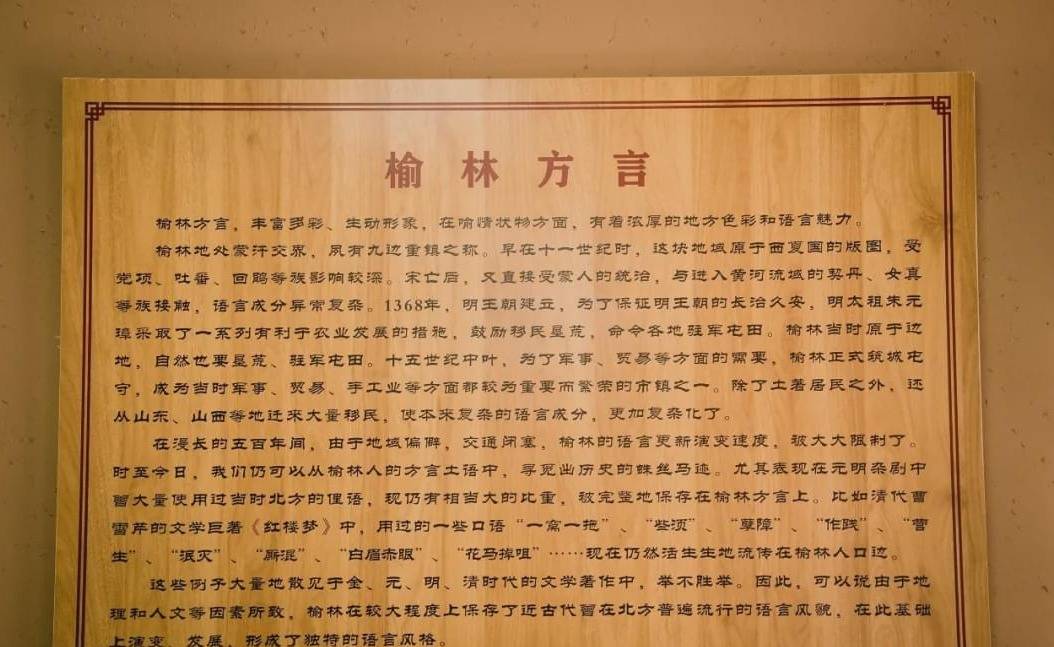 榆林方言
榆林方言，丰富多彩、生动形象，在喻情状物方面，有着浓厚的地方色彩和语言魅力。
榆林地处蒙汗交界，夙有九边重镇之称。早在十一世纪时，这块地域原于西夏国的版图，受
党项、吐番、回鹘等族影响较深。宋亡后，又直接受蒙人的统治，与进入黄河流域的契丹、女真
等族接触，语言成分异常复杂。1368年，明王朝建立，为了保证明王朝的长治久安，明太祖朱元
璋采取了一系列有利于农业发展的措施，鼓励移民垦荒，命令各地驻军屯田。榆林当时原于边
地，自然也要垦荒、驻军屯田。十五世纪中叶，为了军事、贸易等方面的需要，榆林正式筑城屯
守，成为当时军事、贸易、手工业等方面都较为重要而繁荣的市镇之一。除了土著居民之外，还
从山东、山西等地迁来大量移民，使本来复杂的语言成分，更加复杂化了。
在漫长的五百年间，由于地域偏僻，交通闭塞，榆林的语言更新演变速度，被大大限制了。
时至今日，我们仍可以从榆林人的方言土语中，寻觅出历史的蛛丝马迹。尤其表现在元明杂剧中
曾大量使用过当时北方的俚语，现仍有相当大的比重，被完整地保存在榆林方言上。比如清代曹
雪芹的文学巨著《红楼梦》中，用过的一些口语“一窝一拖”、“些须”、“孽障”、“作践”、“营
生”、“泯灭”、“厮混”、“白眉赤眼”、“花马掉咀”……现在仍然活生生地流传在榆林人口边。
这些例子大量地散见于金、元、明、清时代的文学著作中，举不胜举。因此，可以说由于地
理和人文等因素所致，榆林在较大程度上保存了近古代曾在北方普遍流行的语言风貌，在此基础
上演变、发展，形成了独特的语言风格。